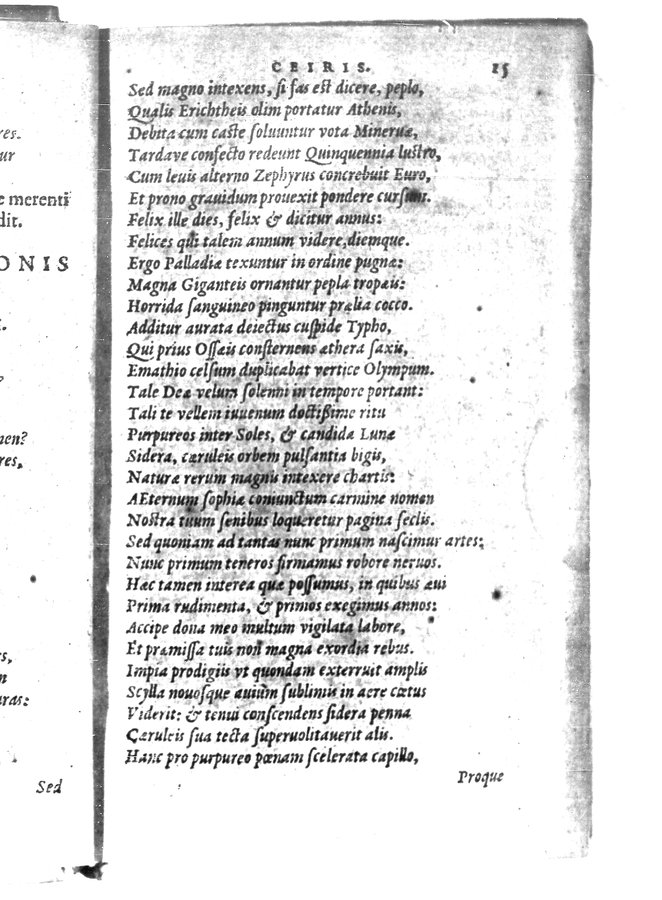 res.
ur
e merenti
dit.
ONIS
nen?
res,
s,
n
uras:
Sed
CEIRIS. 15
Sed magno intexens, ſi fas eſt dicere, peplo,
Qualis Erichtheis olim portatur Athenis,
Debita cum caſte ſoluuntur vota Mineruæ,
Tardave confecto redeunt Quinquennia luſtro,
Cum leuis alterno Zephyrus concrebuit Euro,
Et prono grauidum prouexit pondere curſum.
Felix ille dies, felix & dicitur annus:
Felices qui talem annum videre, diemque.
Ergo Palladiæ texuntur in ordine pugnæ:
Magna Giganteis ornantur pepla tropæis:
Horrida ſanguineo pinguntur prælia cocco.
Additur aurata deiectus cuſpide Typho,
Qui prius Oſſæis conſternens æthera ſaxis,
Emathio celſum duplicabat vertice Olympum.
Tale Deæ velum ſolenni in tempore portant:
Tali te vellem iuuenum doctißime ritu
Purpureos inter Soles, & candida Lunæ
Sidera, cæruleis orbem pulſantia bigis,
Naturæ rerum magnis intexere chartis:
AEternum ſophiæ coniunctum carmine nomen
Noſtra tuum ſenibus loqueretur pagina ſeclis.
Sed quoniam ad tantas nunc primum naſcimur artes:
Nunc primum teneros firmamus robore neruos.
Hæc tamen interea quæ poſſumus, in quibus æui
Prima rudimenta, & primos exegimus annos:
Accipe dona meo multum vigilata labore,
Et præmiſſa tuis non magna exordia rebus.
Impia prodigiis vt quondam exterruit amplis
Scylla nouoſque auium ſublimis in aere cœtus
Viderit: & tenui conſcendens ſidera penna
Cæruleis ſua tecta ſuperuolitauerit alis.
Hanc pro purpureo pœnam ſcelerata capillo,
Proque